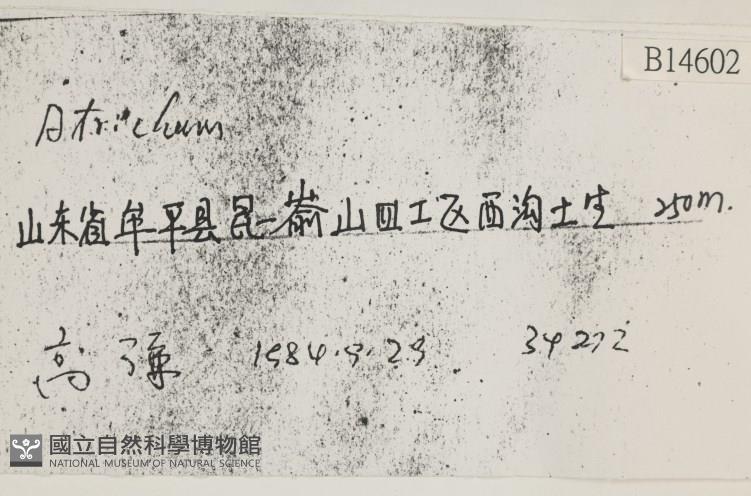 B14602
Atrichum
山东省牟平县昆嵛山四工区西沟土生 250m.
高谦 1984.9.29 34272
國立自然科學博物館
NATIONAL MUSEUM OF NATURAL SCIENCE